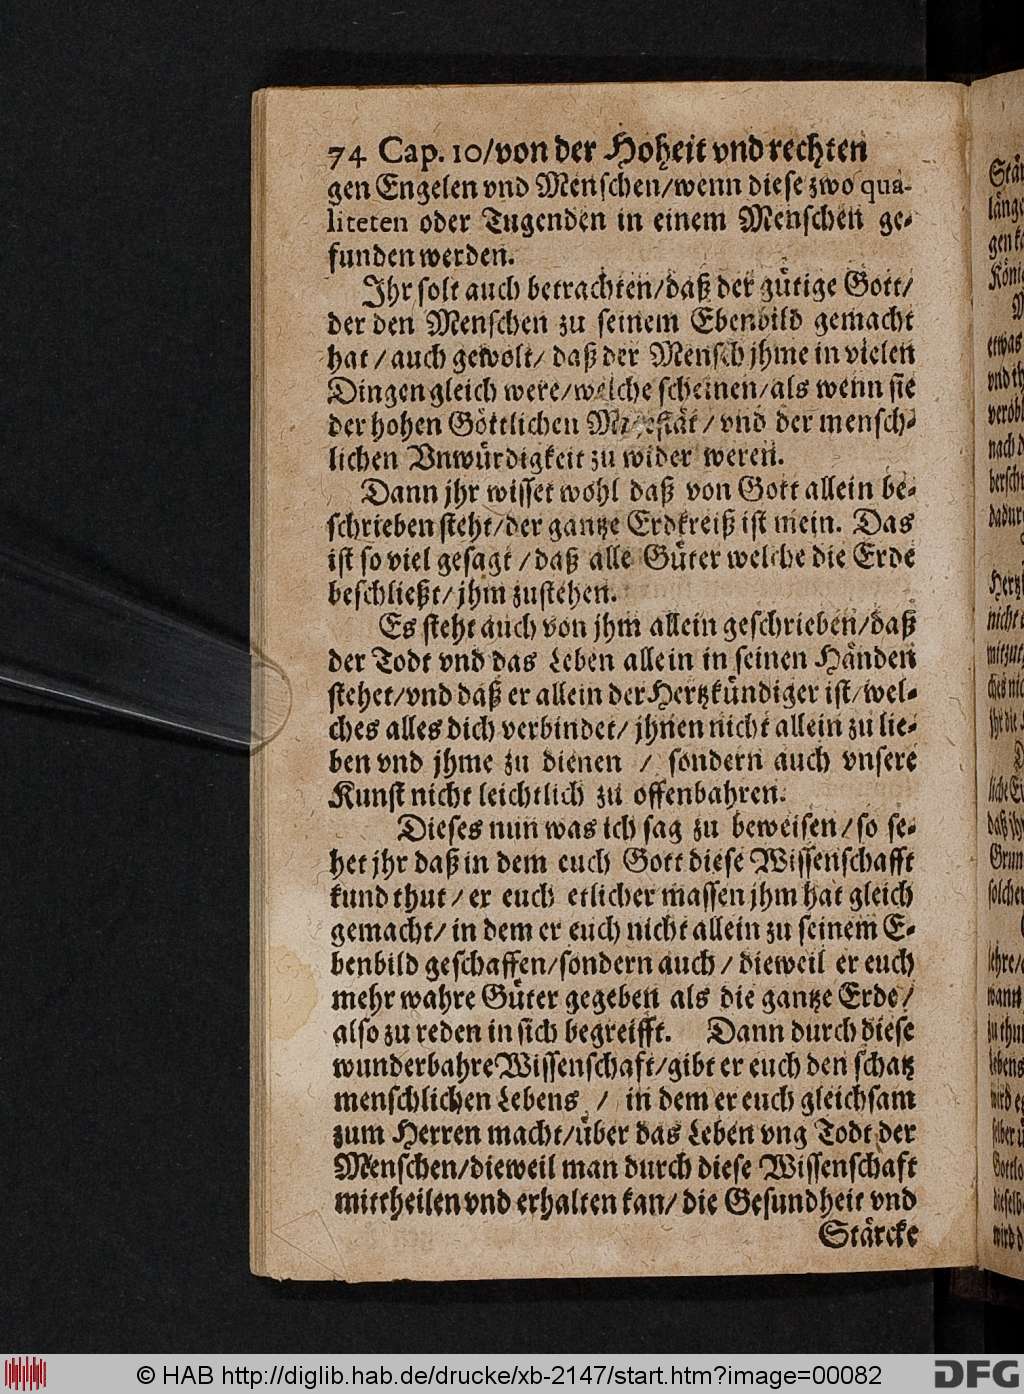 74 Cap. 10/von der Hoheit vnd rechten
gen Engelen vnd Menschen/wenn diese zwo qua-
liteten oder Tugenden in einem Menschen ge-
funden werden.
Ihr solt auch betrachten/daß der gütige Gott/
der den Menschen zu seinem Ebenbild gemacht
hat / auch gewolt/ daß der Mensch jhme in vielen
Dingen gleich were/welche scheinen/als wenn sie
der hohen Göttlichen Majestät / vnd der mensch-
lichen Vnwürdigkeit zu wider weren.
Dann jhr wisset wohl daß von Gott allein be-
schrieben steht/der gantze Erdkreiß ist mein. Das
ist so viel gesagt / daß alle Güter welche die Erde
beschließt/jhm zustehen.
Es steht auch von jhm allein geschrieben/daß
der Todt vnd das Leben allein in seinen Händen
stehet/vnd daß er allein der Hertzkündiger ist/wel-
ches alles dich verbindet/ jhnen nicht allein zu lie-
ben vnd jhme zu dienen / sondern auch vnsere
Kunst nicht leichtlich zu offenbahren.
Dieses nun was ich sag zu beweisen/so se-
het jhr daß in dem euch Gott diese Wissenschafft
kund thut / er euch etlicher massen jhm hat gleich
gemacht/ in dem er euch nicht allein zu seinem E-
benbild geschaffen/sondern auch / dieweil er euch
mehr wahre Güter gegeben als die gantze Erde/
also zu reden in sich begreifft. Dann durch diese
wunderbahre Wissenschaft/gibt er euch den schatz
menschlichen Lebens / in dem er euch gleichsam
zum Herren macht/über das Leben vng Todt der
Menschen/dieweil man durch diese Wissenschaft
mittheilen vnd erhalten kan/ die Gesundheit vnd
Stärcke
Stä
länge
gen k
Köni
etwas
vnd th
veröb
nach d
bersch
dadur
Hertz
nicht
mitzut
ches nic
jhr die
liche E
daß jh
Grun
solche
lehre/
wann
zu thun
Lebens
wird e
selber ü
Gottlo
dieselb
wird d
© HAB http://diglib.hab.de/drucke/xb-2147/start.htm?image=00082
DFG